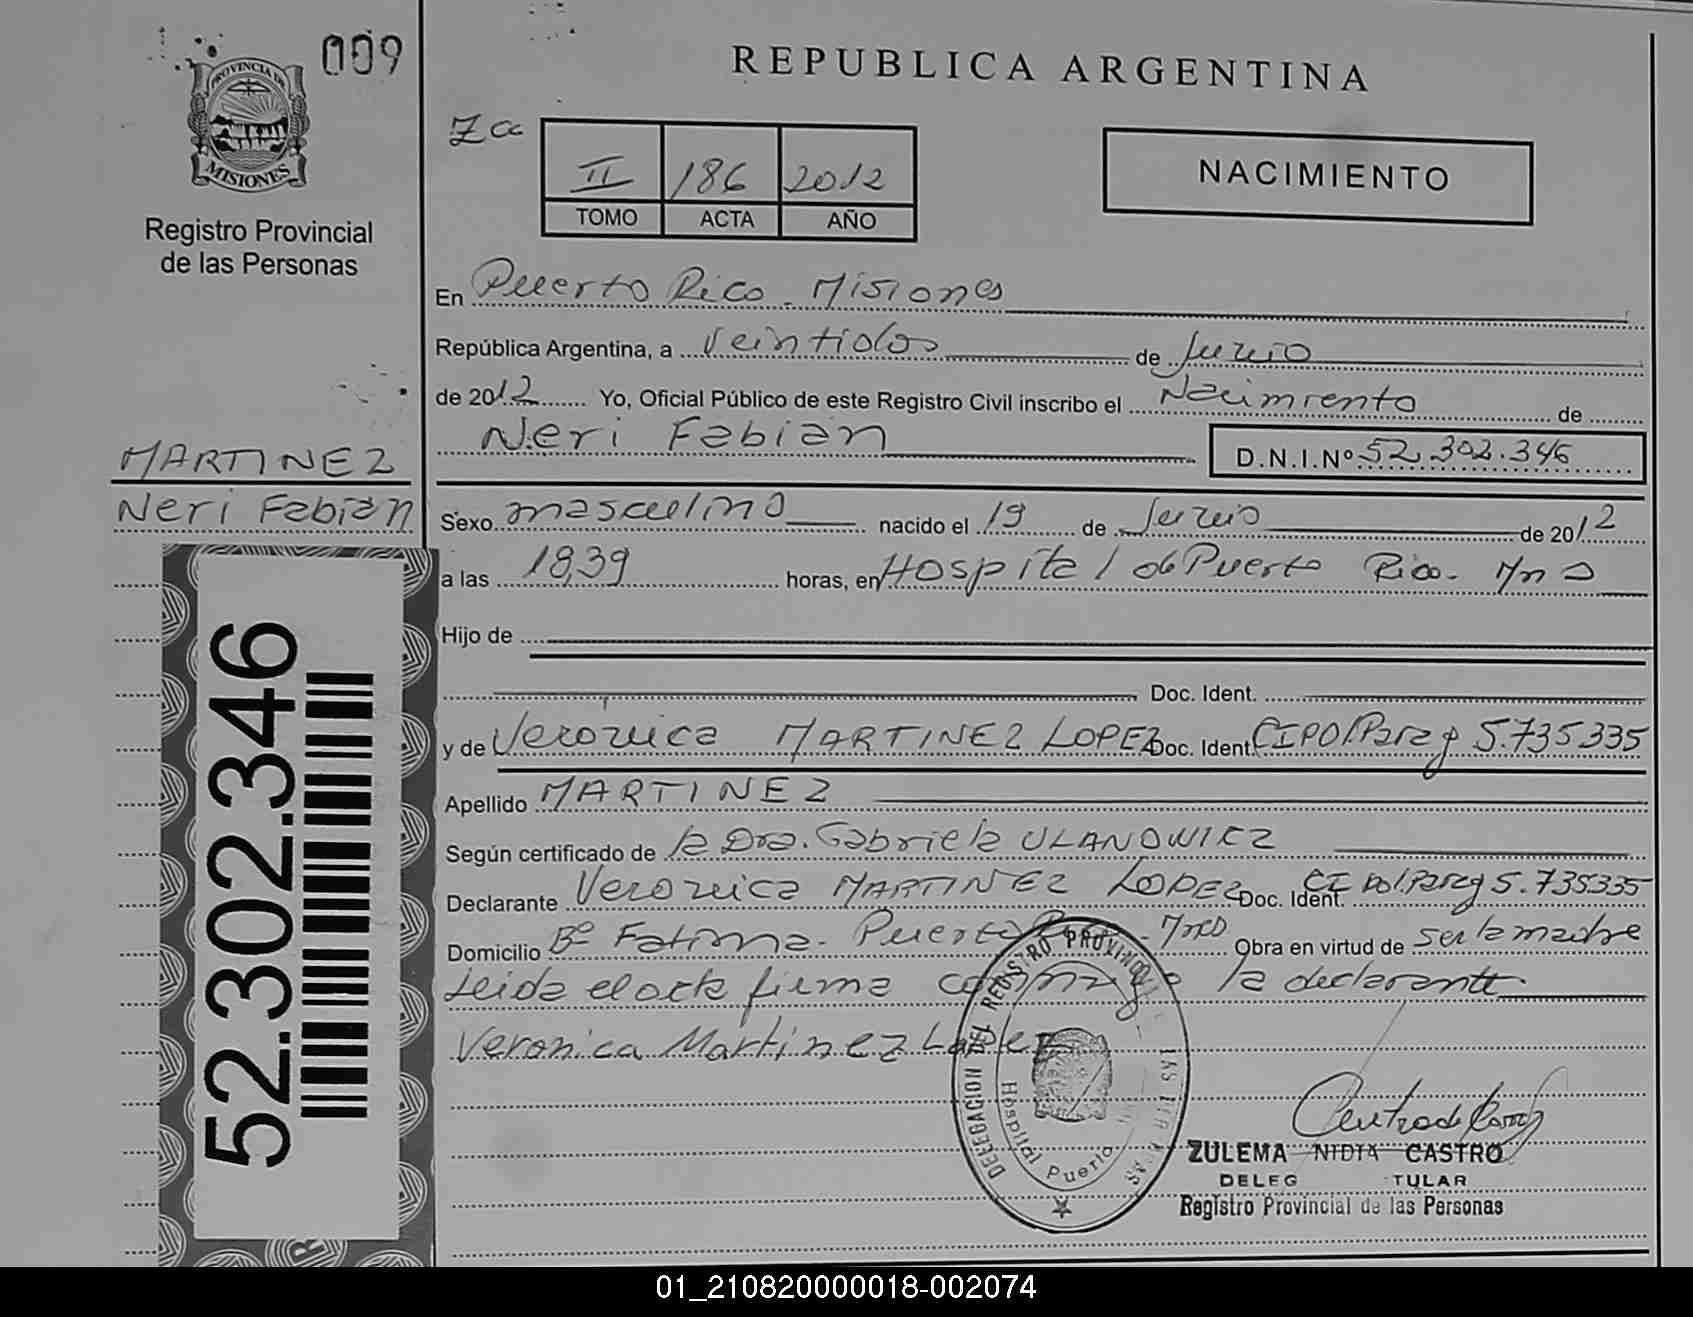 009
PROVINCIA DE
MISIONES
Registro Provincial
de las Personas
MARTINEZ
Neri Fabián
52.302.346
REPUBLICA ARGENTINA
II 186 2012
TOMO ACTA AÑO
NACIMIENTO
En Puerto Rico - Misiones
República Argentina, a veintidos de Junio
de 2012 Yo, Oficial Público de este Registro Civil inscribo el Nacimiento de
Neri Fabián D.N.I.Nº 52.302.346
Sexo masculino nacido el 19 de Junio de 2012
a las 18,39 horas, en Hospital de Puerto Rico. Mns
Hijo de
Doc. Ident.
y de Veronica MARTINEZ LOPEZ Doc. Ident. CIPol Parag 5.735335
Apellido MARTINEZ
Según certificado de la Dra. Gabriela ULANOWICZ
Declarante Veronica MARTINEZ LOPEZ Doc. Ident. CI Pol.Parag 5.735335
Domicilio Bº Fatima. Puerto Obra en virtud de ser la madre
Leida el acta firma conmigo la declarante
Veronica Martinez Lopez
DELEGACION DEL REGISTRO PROVINCIAL DE LAS
Hospital Puerto
ZULEMA NIDIA CASTRO
DELEG TULAR
Registro Provincial de las Personas
01_210820000018-002074